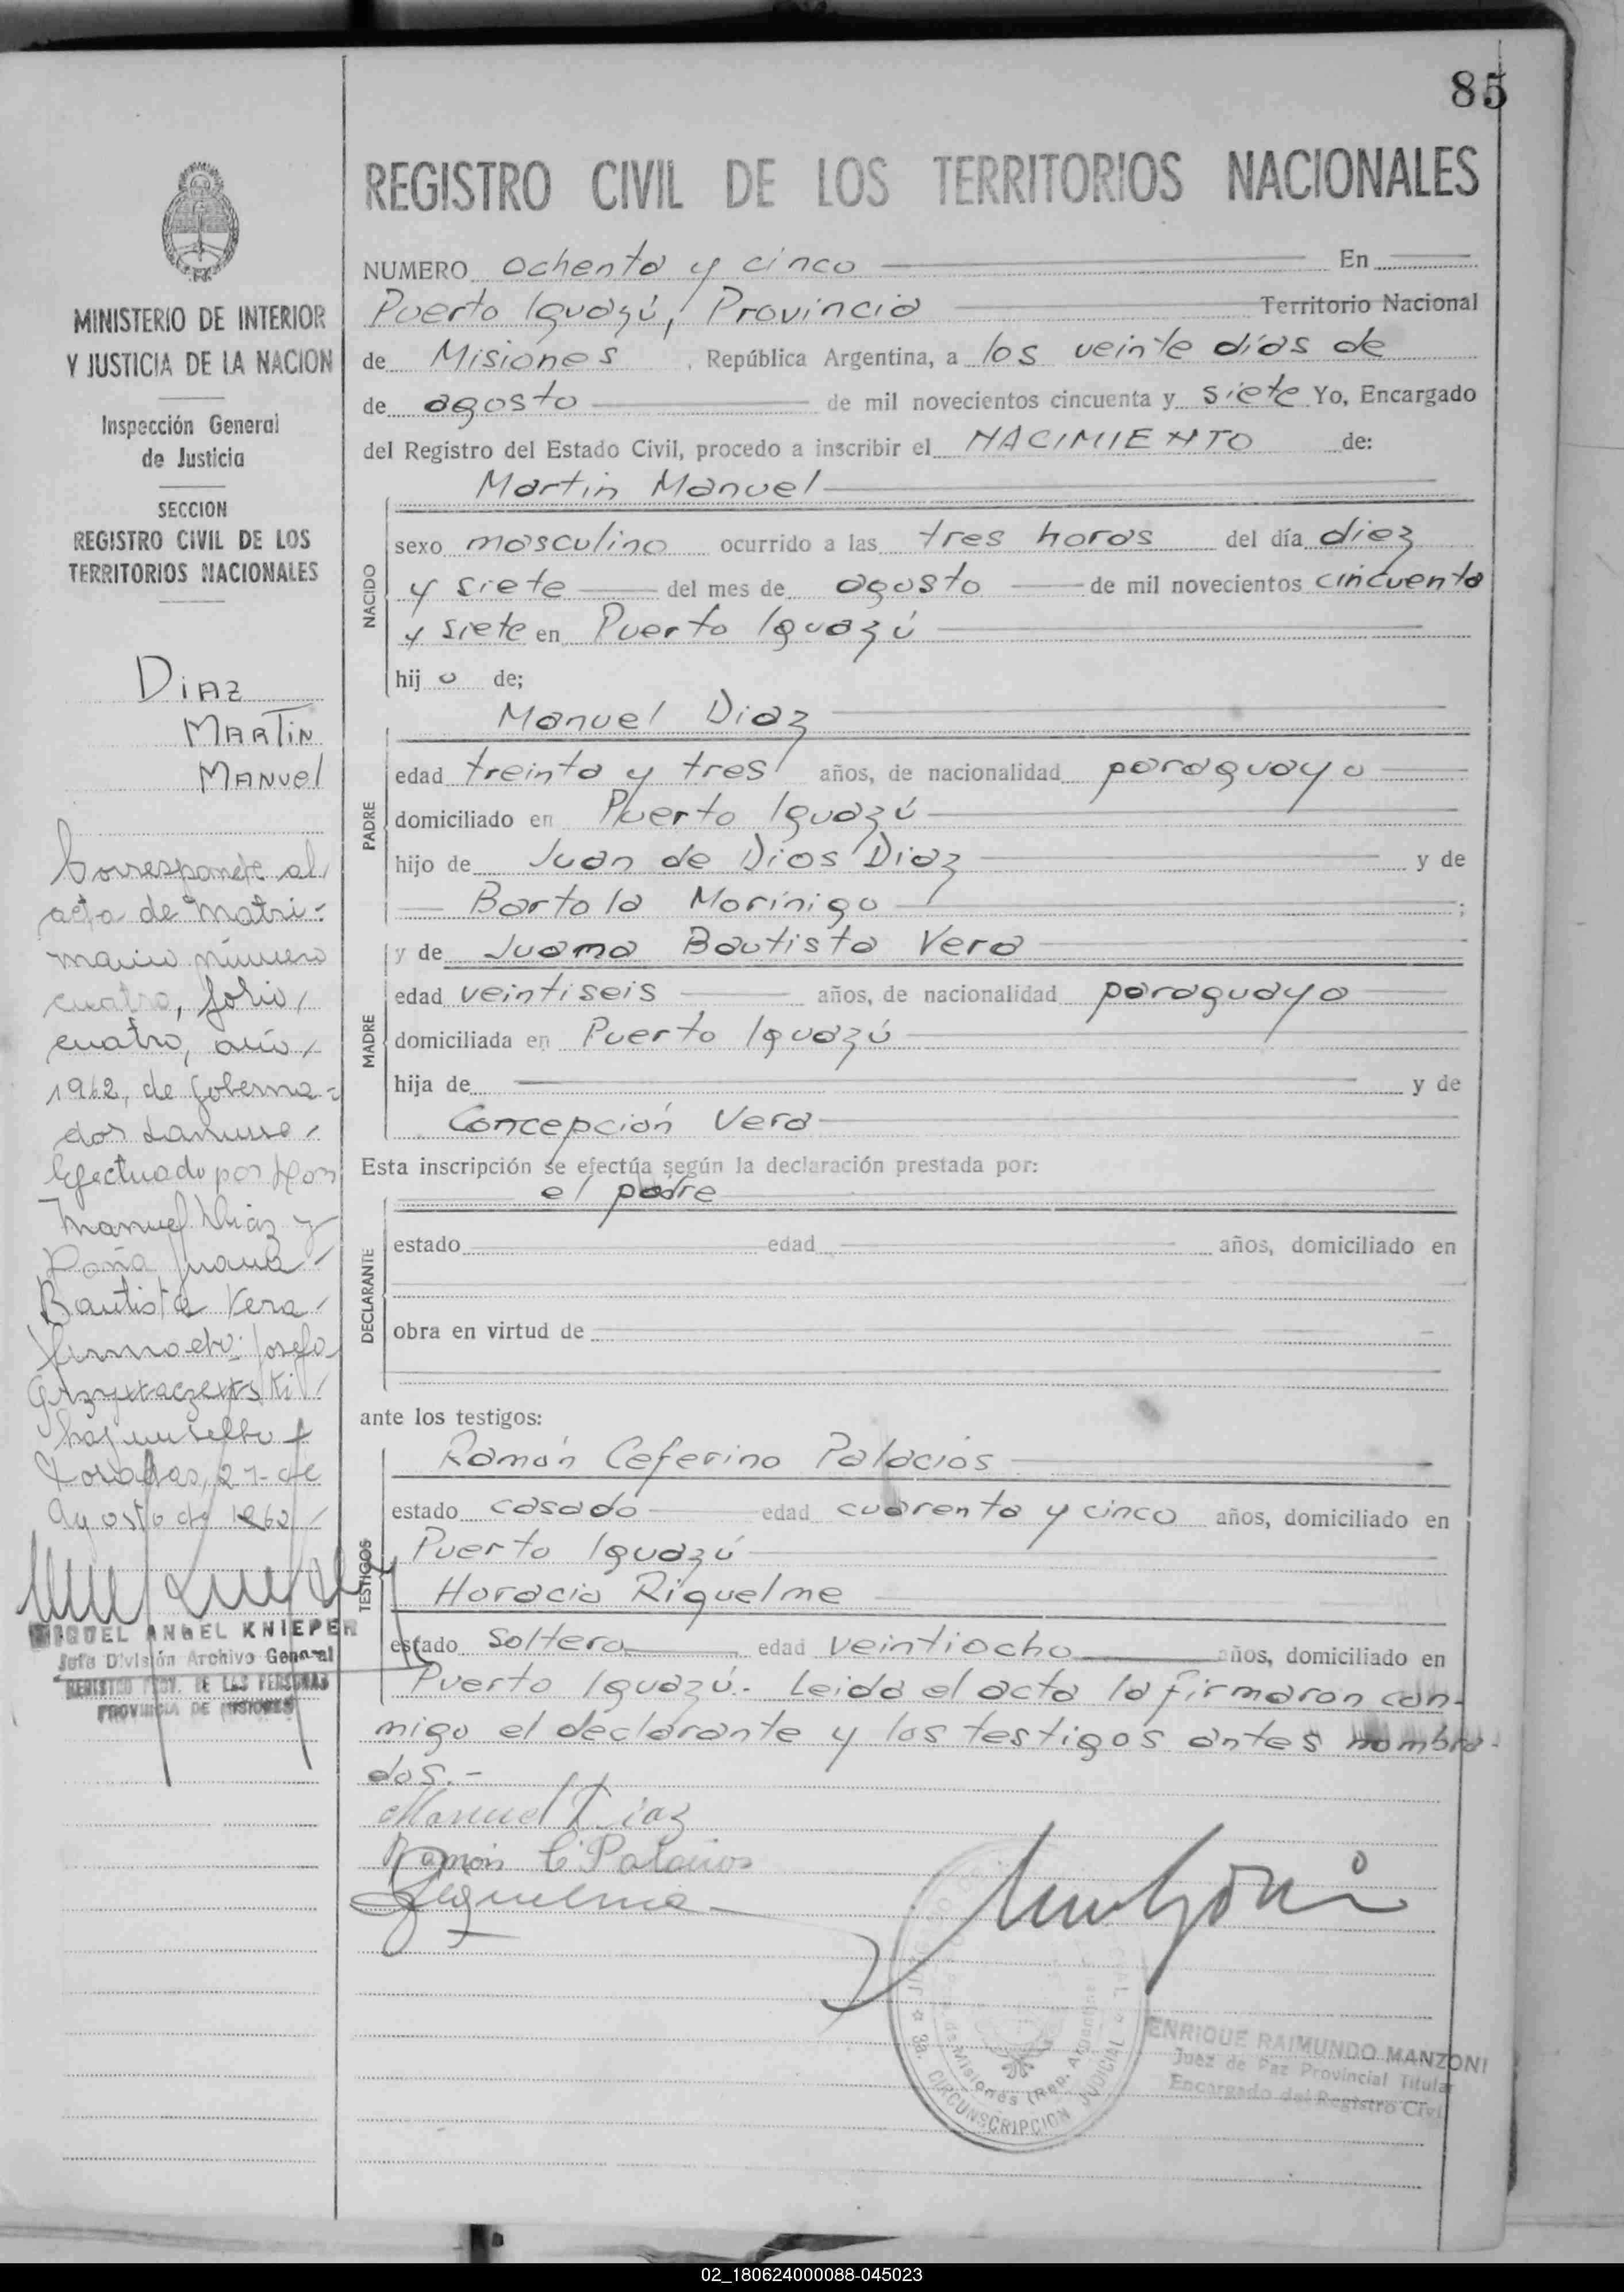 85
REGISTRO CIVIL DE LOS TERRITORIOS NACIONALES
MINISTERIO DE INTERIOR
Y JUSTICIA DE LA NACION
Inspección General
de Justicia
SECCION
REGISTRO CIVIL DE LOS
TERRITORIOS NACIONALES
DIAZ
MARTIN
MANUEl
Corresponde al
acta de matri-
monio número
cuatro, folio
cuatro, año
1962, de Goberna-
dor Lanusse
Efectuado por Don
Manuel Diaz y
Doña Juana
Bautista Vera
Josefa
hay un sello
Posadas, 27 de
Agosto de 1962
MIGUEL ANGEL KNIEPER
Jefe División Archivo General
REGISTRO PROV. DE LAS PERSONAS
PROVINCIA DE MISIONES
NUMERO ochenta y cinco En
Puerto Iguazú, Provincia Territorio Nacional
de Misiones, República Argentina, a los veinte días de
de agosto de mil novecientos cincuenta y siete Yo, Encargado
del Registro del Estado Civil, procedo a inscribir el NACIMIENTO de:
Martin Manuel
NACIDO
sexo masculino ocurrido a las tres horas del día diez
y siete del mes de agosto de mil novecientos cincuenta
y siete en Puerto Iguazú
hij o de;
Manuel Diaz
PADRE
edad treinta y tres años, de nacionalidad paraguayo
domiciliado en Puerto Iguazú
hijo de Juan de Dios Diaz y de
Bartola Morínigo ;
y de Juama Bautista Vera
MADRE
edad veintiseis años, de nacionalidad paraguaya
domiciliada en Puerto Iguazú
hija de y de
Concepción Vera
Esta inscripción se efectúa según la declaración prestada por:
el padre
DECLARANTE
estado edad años, domiciliado en
obra en virtud de
ante los testigos:
Ramón Ceferino Palacios
TESTIGOS
estado casado edad cuarenta y cinco años, domiciliado en
Puerto Iguazú
Horacio Riquelme
estado Soltero edad veintiocho años, domiciliado en
Puerto Iguazú.- Leida el acta la firmaron con-
migo el declarante y los testigos antes nombra-
dos.-
Manuel Diaz
Ramón C Palacios
Riquelme
Manzoni
3a. CIRCUNSCRIPCION JUDICIAL
de Misiones (Rep. Argentina)
ENRIQUE RAIMUNDO MANZONI
Juez de Paz Provincial Titular
Encargado del Registro Civil
02_180624000088-045023